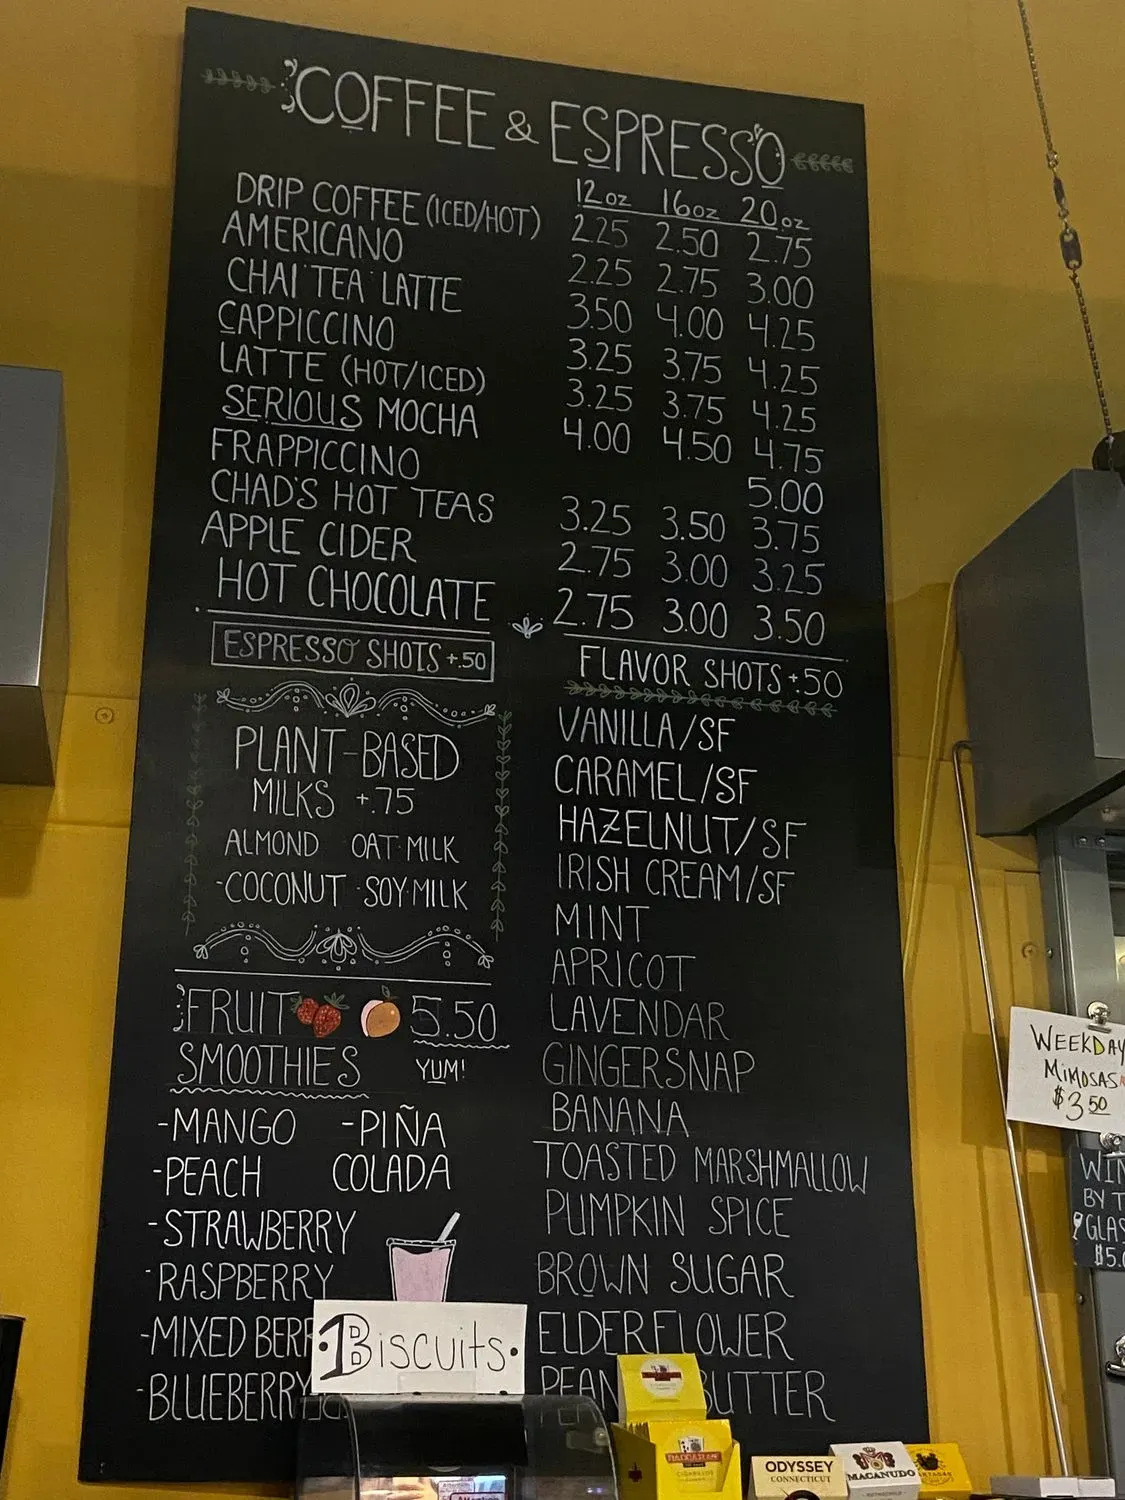 COFFEE & ESPRESSO
12oz 16oz 20oz
DRIP COFFEE (ICED/HOT) 2.25 2.50 2.75
AMERICANO 2.25 2.75 3.00
CHAI TEA LATTE 3.50 4.00 4.25
CAPPICCINO 3.25 3.75 4.25
LATTE (HOT/ICED) 3.25 3.75 4.25
SERIOUS MOCHA 4.00 4.50 4.75
FRAPPICCINO 5.00
CHAD'S HOT TEAS 3.25 3.50 3.75
APPLE CIDER 2.75 3.00 3.25
HOT CHOCOLATE 2.75 3.00 3.50
ESPRESSO SHOTS +.50
PLANT-BASED
MILKS +.75
ALMOND OAT MILK
-COCONUT SOY MILK
FRUIT 5.50
SMOOTHIES YUM!
-MANGO -PIÑA
-PEACH COLADA
-STRAWBERRY
-RASPBERRY
-MIXED
-BLUEBERRY
FLAVOR SHOTS +.50
VANILLA/SF
CARAMEL/SF
HAZELNUT/SF
IRISH CREAM/SF
MINT
APRICOT
LAVENDAR
GINGERSNAP
BANANA
TOASTED MARSHMALLOW
PUMPKIN SPICE
BROWN SUGAR
ELDERFLOWER
BUTTER
Biscuits
WEEKDAY
MIMOSAS
$3.50
BY
ODYSSEY
CONNECTICUT
MACANUDO